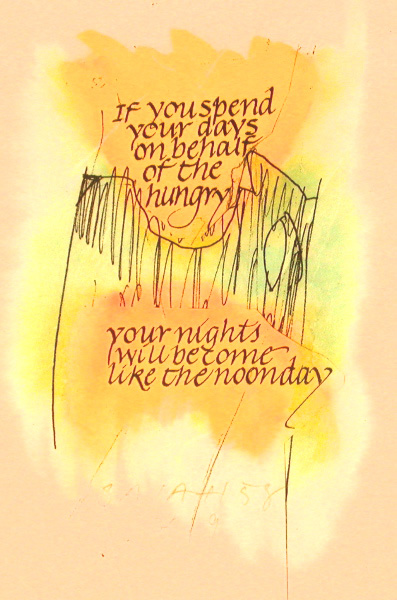 If you spend
your days
on behalf
of the
hungry
your nights
will become
like the noonday